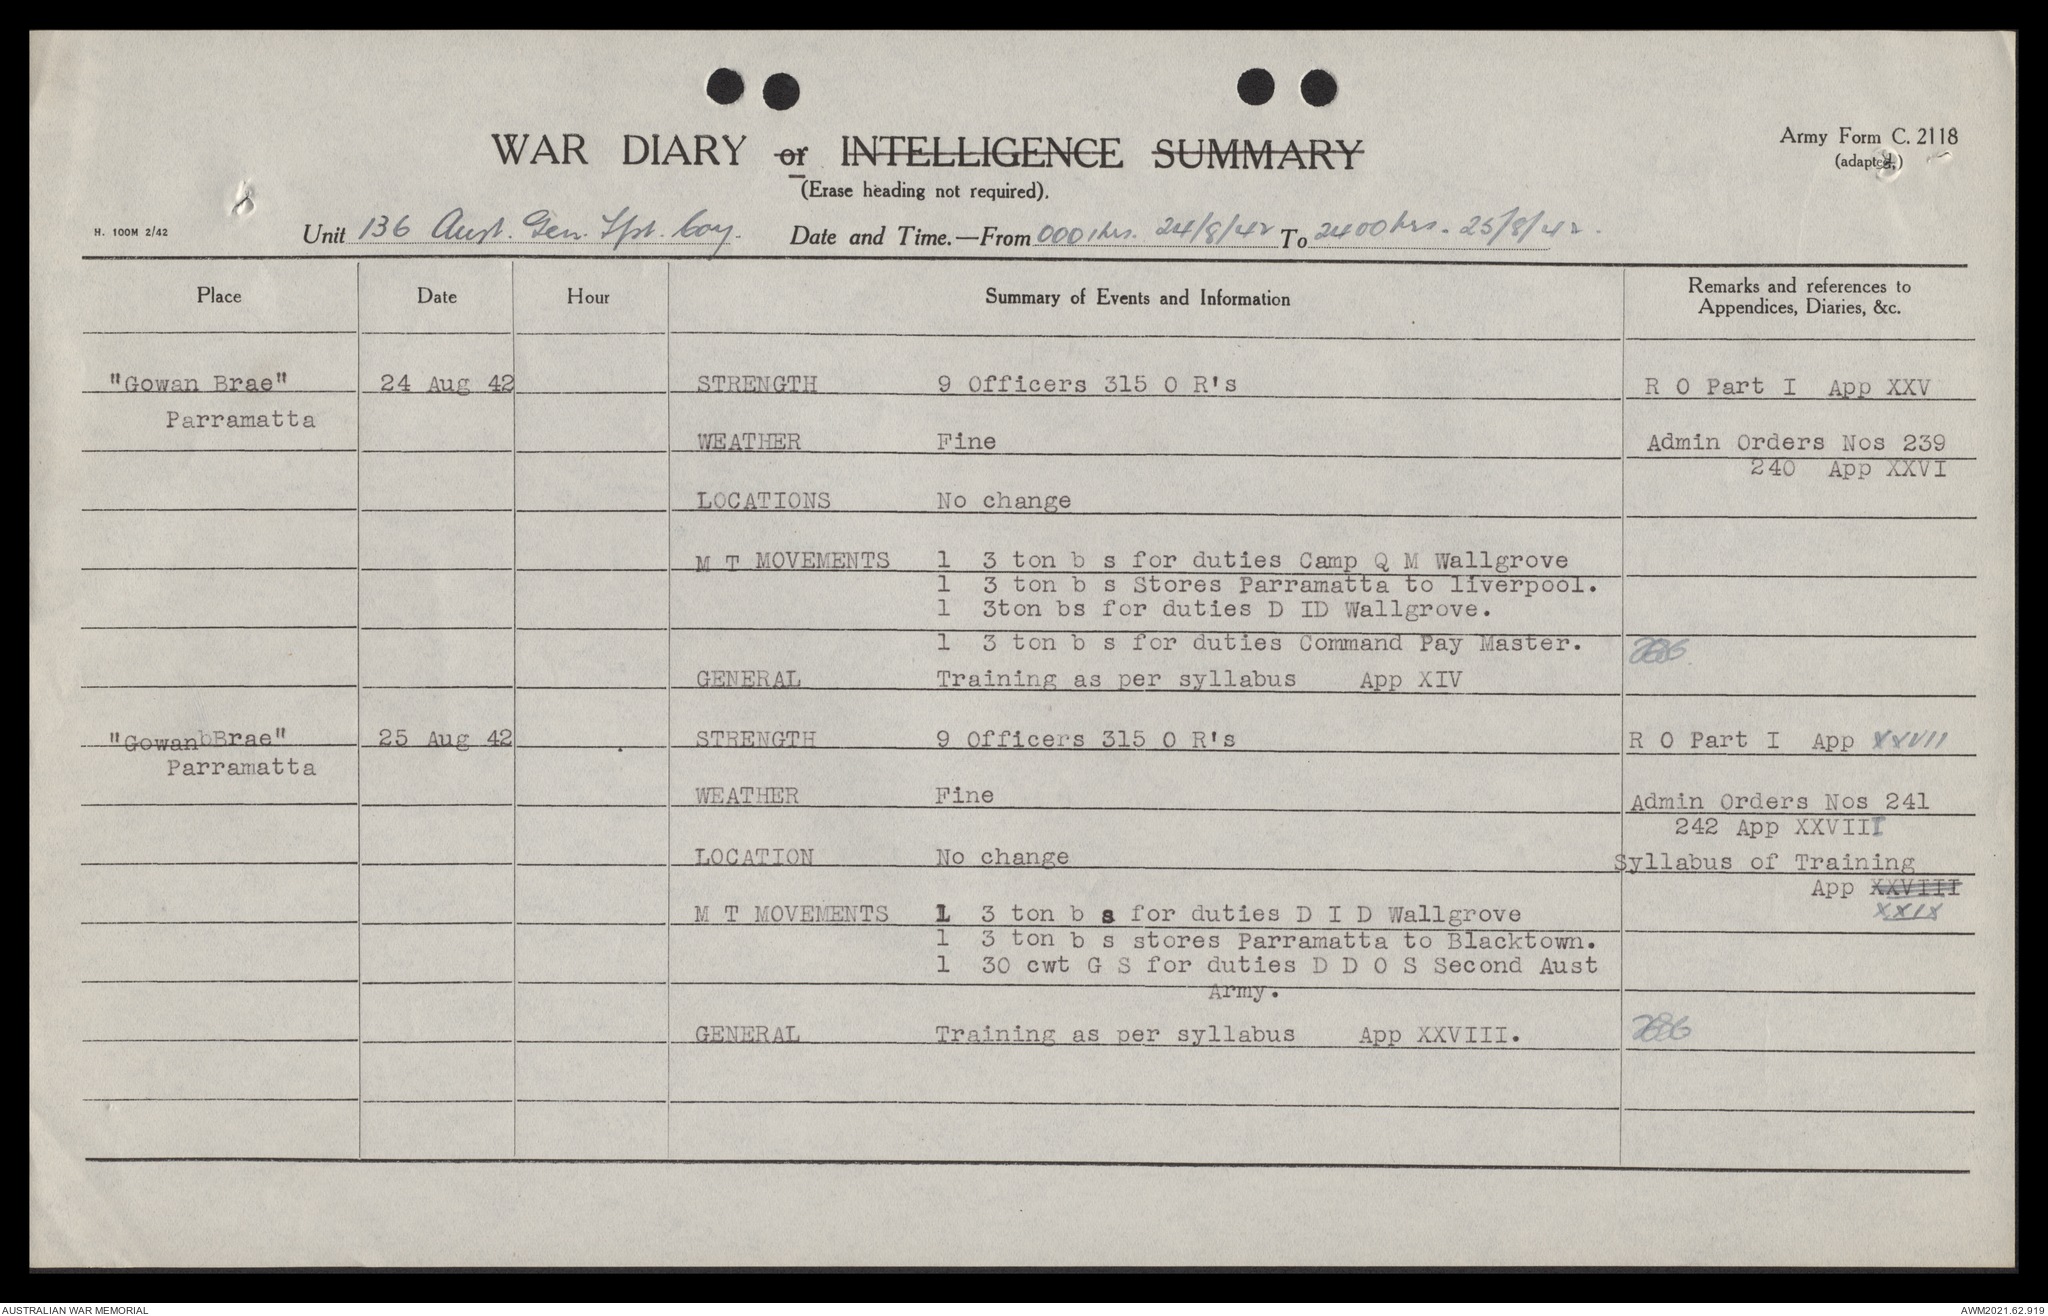 WAR DIARY or INTELLIGENCE SUMMARY
(Erase heading not required).
Army Form C. 2118
(adapted.)
8
H. 100M 2/42
Unit 136 Aust. Gen. Tpt. Coy. Date and Time.—From 0001hrs. 24/8/42 To 2400hrs. 25/8/42.
Place Date Hour Summary of Events and Information Remarks and references to
Appendices, Diaries, &c.
"Gowan Brae" 24 Aug 42 STRENGTH 9 Officers 315 O R's R O Part I App XXV
Parramatta
WEATHER Fine Admin Orders Nos 239
240 App XXVI
LOCATIONS No change
M T MOVEMENTS 1 3 ton b s for duties Camp Q M Wallgrove
1 3 ton b s Stores Parramatta to liverpool.
1 3ton bs for duties D ID Wallgrove.
1 3 ton b s for duties Command Pay Master.
GENERAL Training as per syllabus App XIV
"GowanbBrae" 25 Aug 42 STRENGTH 9 Officers 315 O R's R O Part I App XXVII
Parramatta
WEATHER Fine Admin Orders Nos 241
242 App XXVIII
LOCATION No change Syllabus of Training
App XXVIII
XXIX
M T MOVEMENTS 1 3 ton b s for duties D I D Wallgrove
1 3 ton b s stores Parramatta to Blacktown.
1 30 cwt G S for duties D D O S Second Aust
Army.
GENERAL Training as per syllabus App XXVIII.
AUSTRALIAN WAR MEMORIAL AWM2021.62.919